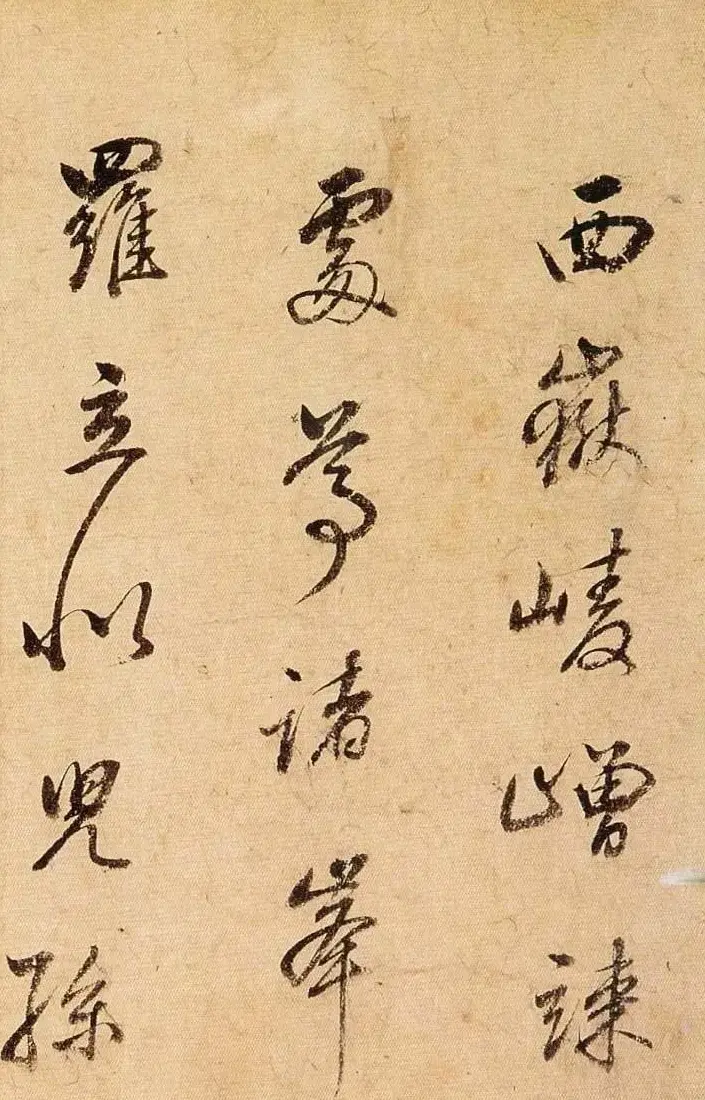 西嶽崚嶒竦
處尊諸峯
羅立似兒孫